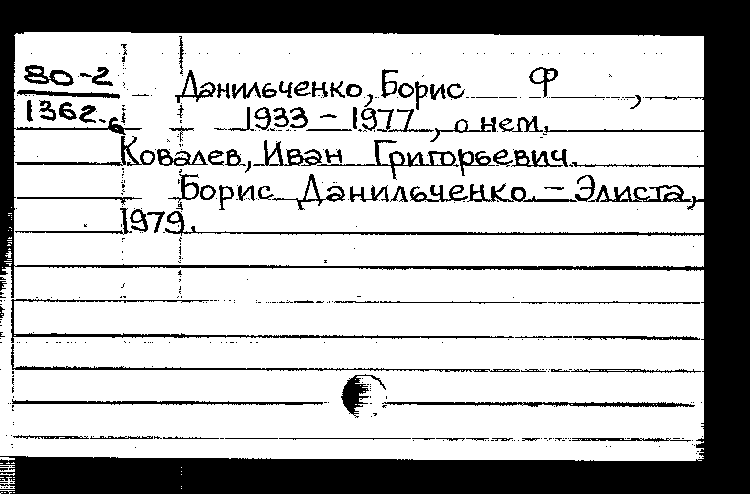 80-2
1362-6
Данильченко, Борис Ф ,
1933 - 1977 , о нем.
Ковалев, Иван Григорьевич.
Борис Данильченко. - Элиста,
1979.